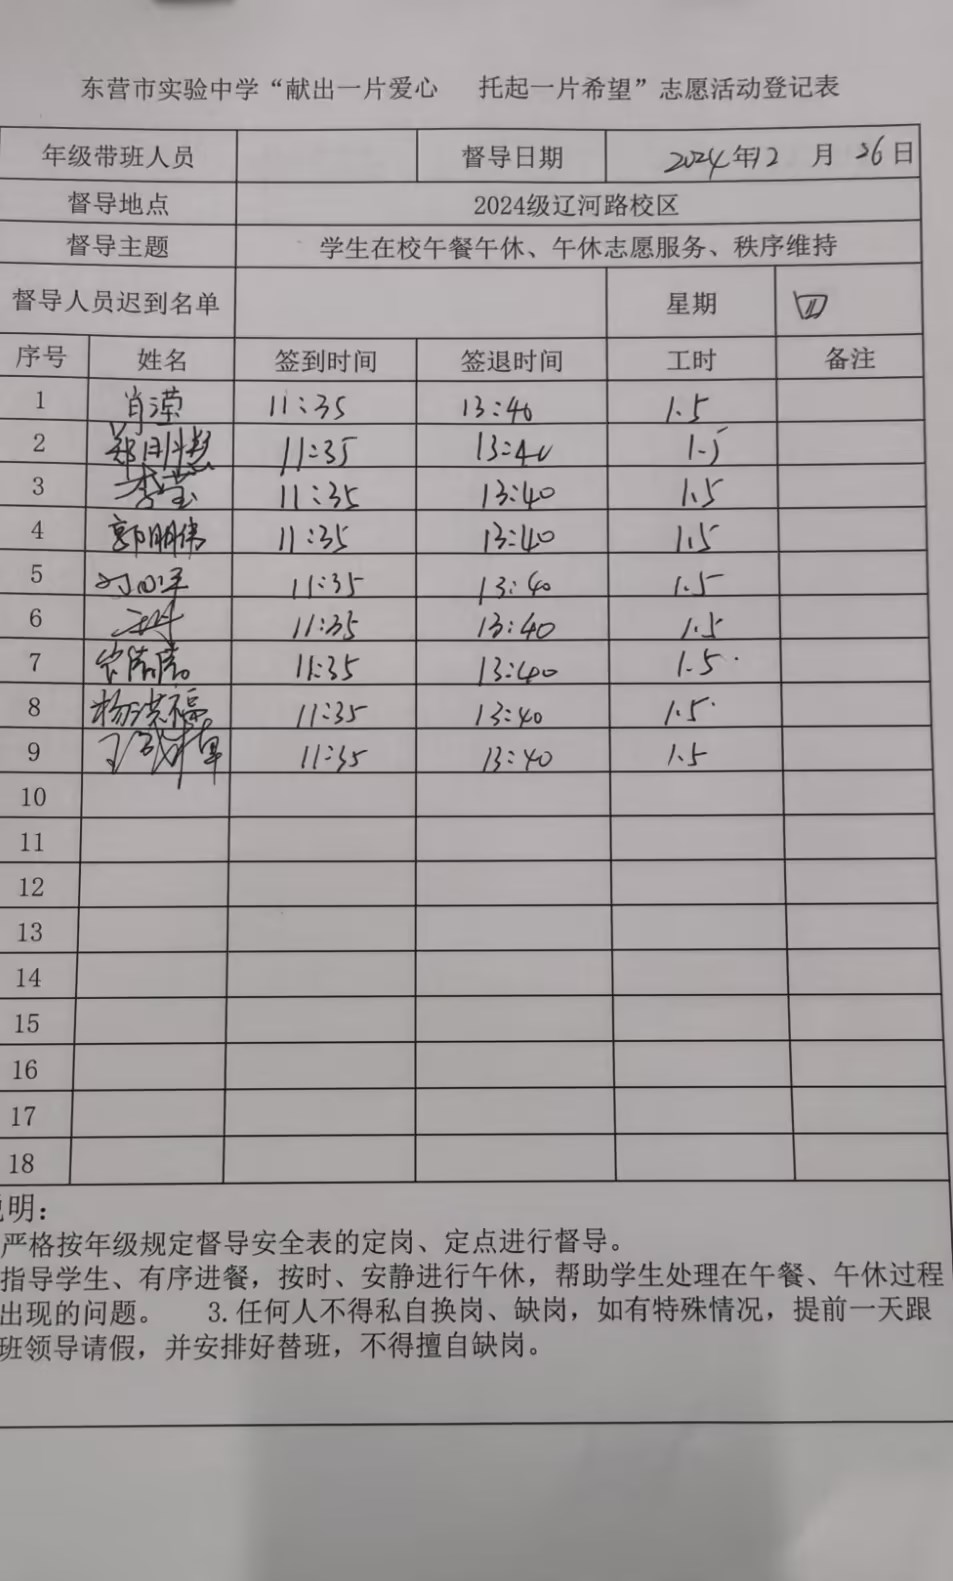 东营市实验中学“献出一片爱心 托起一片希望”志愿活动登记表
年级带班人员 督导日期 2024年12月26日
督导地点 2024级辽河路校区
督导主题 学生在校午餐午休、午休志愿服务、秩序维持
督导人员迟到名单 星期 四
序号 姓名 签到时间 签退时间 工时 备注
1 肖滢 11:35 13:40 1.5
2 11:35 13:40 1.5
3 李莹 11:35 13:40 1.5
4 郭明伟 11:35 13:40 1.5
5 11:35 13:40 1.5
6 11:35 13:40 1.5
7 11:35 13:40 1.5
8 杨洪福 11:35 13:40 1.5
9 11:35 13:40 1.5
10
11
12
13
14
15
16
17
18
说明：
严格按年级规定督导安全表的定岗、定点进行督导。
指导学生、有序进餐，按时、安静进行午休，帮助学生处理在午餐、午休过程
出现的问题。 3.任何人不得私自换岗、缺岗，如有特殊情况，提前一天跟
班领导请假，并安排好替班，不得擅自缺岗。